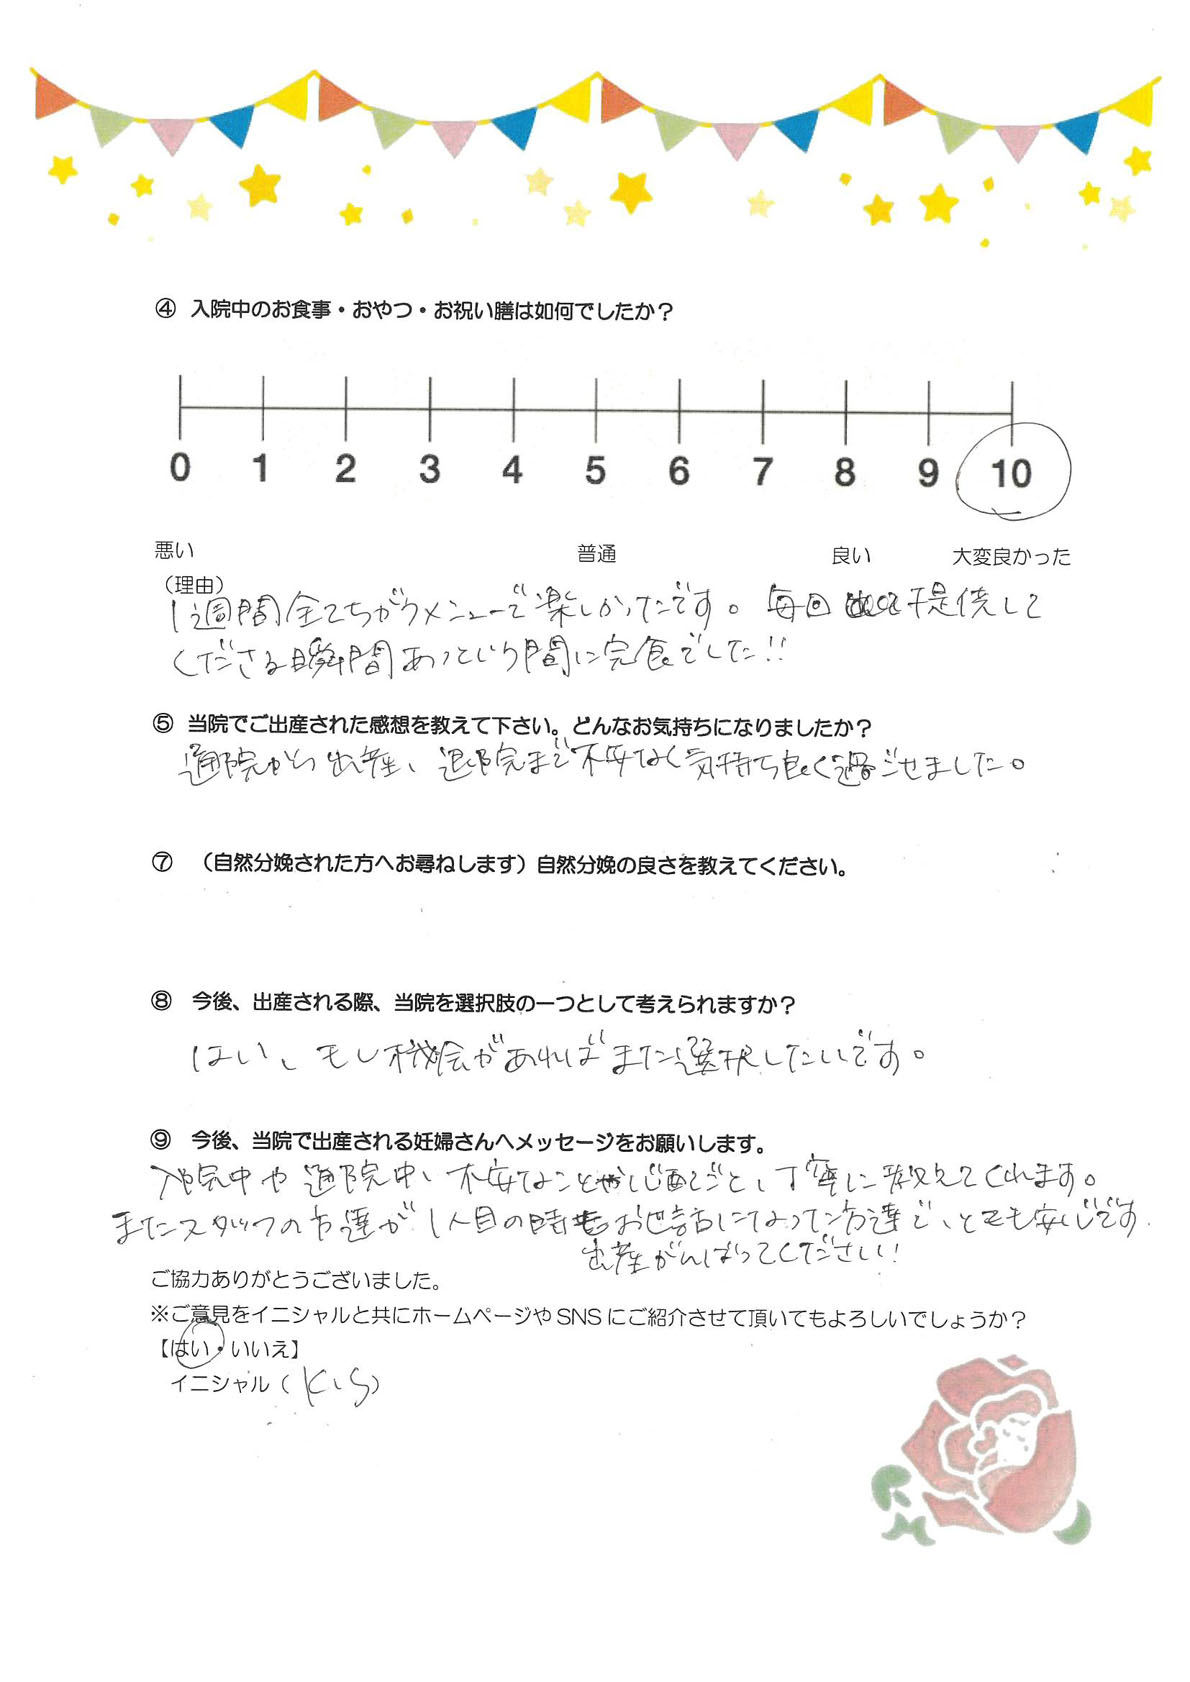 ④ 入院中のお食事・おやつ・お祝い膳は如何でしたか?
0 1 2 3 4 5 6 7 8 9 10
悪い 普通 良い 大変良かった
(理由)
1週間全てちがうメニューで楽しかったです。毎回 提供して
くださる瞬間あっという間に完食でした!!
⑤ 当院でご出産された感想を教えて下さい。どんなお気持ちになりましたか?
通院から出産、退院まで不安なく気持ち良く過ごせました。
⑦ (自然分娩された方へお尋ねします)自然分娩の良さを教えてください。
⑧ 今後、出産される際、当院を選択肢の一つとして考えられますか?
はい、もし機会があればまた選択したいです。
⑨ 今後、当院で出産される妊婦さんへメッセージをお願いします。
入院中や通院中、不安なことや心配ごと、丁寧に教えてくれます。
またスタッフの方達が1人目の時もお世話になった方達で、とても安心です
出産がんばってください!
ご協力ありがとうございました。
※ご意見をイニシャルと共にホームページやSNSにご紹介させて頂いてもよろしいでしょうか?
【はい・いいえ】
イニシャル(K、S)